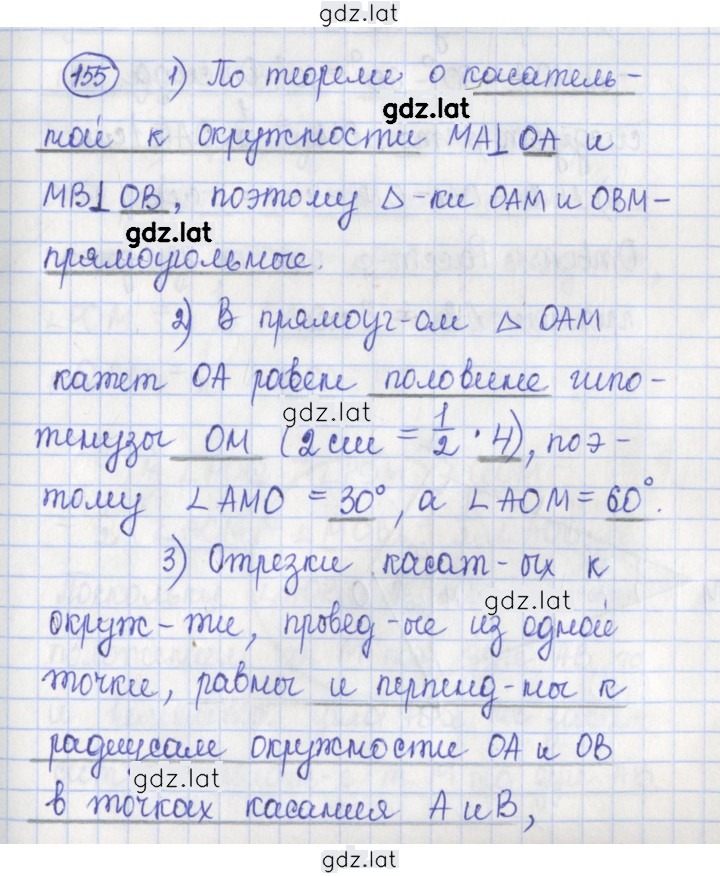 gdz.lat
155 1) По теореме о касатель-
gdz.lat
ной к окружности MA⊥OA и
MB⊥OB, поэтому △-ки OAM и OBM-
gdz.lat
прямоугольные.
2) В прямоуг-ом △ OAM
катет OA равен половине гипо-
gdz.lat
тенузы OM (2 см = 1/2 · 4), поэ-
тому ∠AMO = 30°, а ∠AOM = 60°.
3) Отрезки касат-ых к
gdz.lat
окруж-ти, провед-ые из одной
точки, равны и перпенд-ны к
радиусам окружности OA и OB
gdz.lat
в точках касания A и B,
gdz.lat